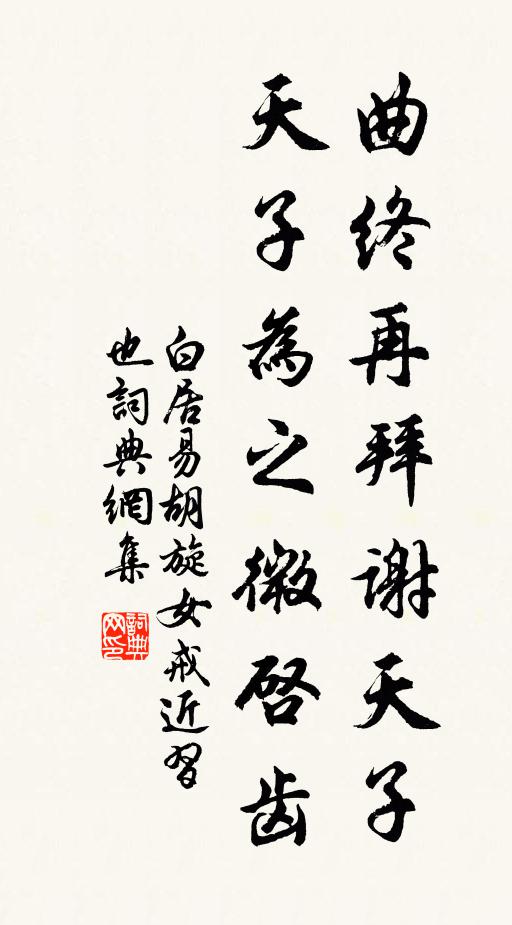 曲终再拜谢天子
天子為之微启齿
白居易胡旋女戒近習
也詞典網集
詞典网印